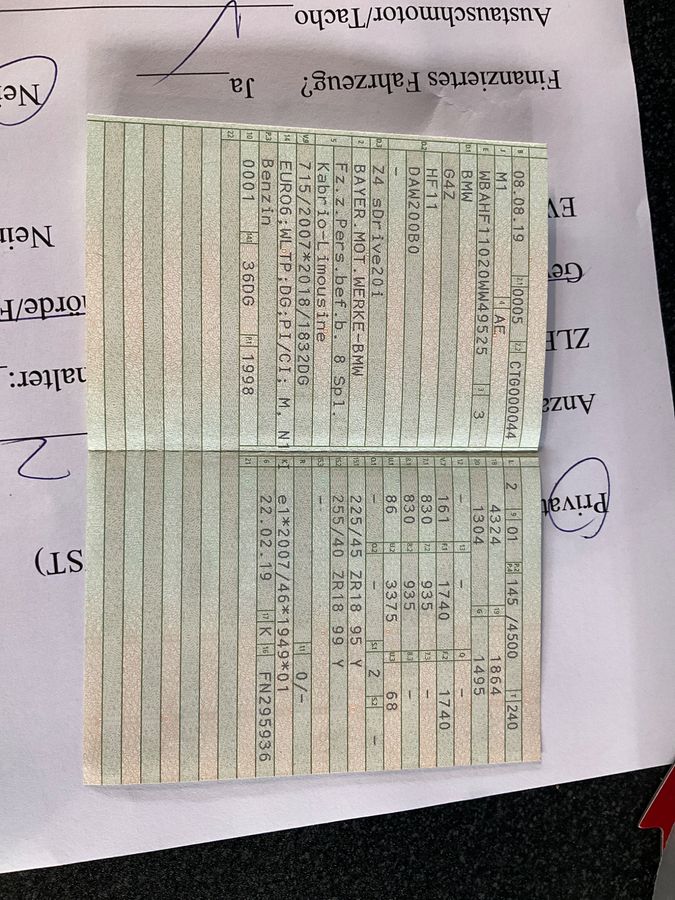 B 08.08.19 2.1 0005 2.2 CTG000044
J M1 4 AE
E WBAHF11020WW49525 3 3
D.1 BMW
D.2 G4Z
HF11
DAW200B0
-
D.3 Z4 sDrive20i
2 BAYER.MOT.WERKE-BMW
5 Fz.z.Pers.bef.b. 8 Spl.
Kabrio-Limousine
V.9 715/2007*2018/1832DG
14 EURO6;WLTP;DG;PI/CI; M, N1
P.3 Benzin
10 0001 14.1 36DG P.1 1998
22
L 2 9 01 P.2 P.4 145 /4500 T 240
18 4324 19 1864
20 1304 G 1495
12 - 13 - Q -
V.7 161 F.1 1740 F.2 1740
7.1 830 7.2 935 7.3 -
8.1 830 8.2 935 8.3 -
U.1 86 U.2 3375 U.3 68
O.1 - O.2 - S.1 2 S.2 -
15.1 225/45 ZR18 95 Y
15.2 255/40 ZR18 99 Y
15.3 -
R 11 0/-
K e1*2007/46*1949*01
6 22.02.19 17 K 16 FN295936
21
Privat
Anza
ZLE
Ge
EV
ST)
2
halter:
örde/H
Nein
Finanziertes Fahrzeug? Ja Nei
Austauschmotor/Tacho